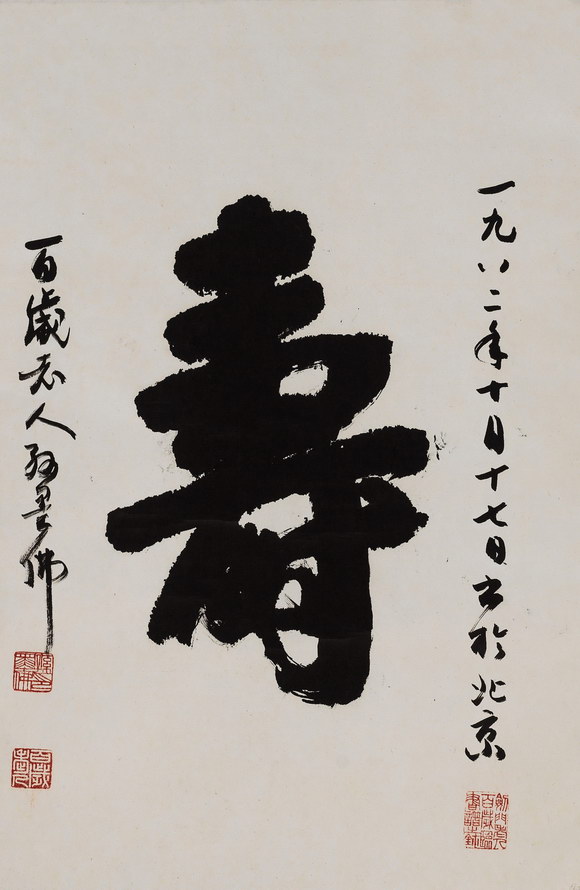 一九八二年十月十七日书於北京
壽
百歲老人孫墨佛